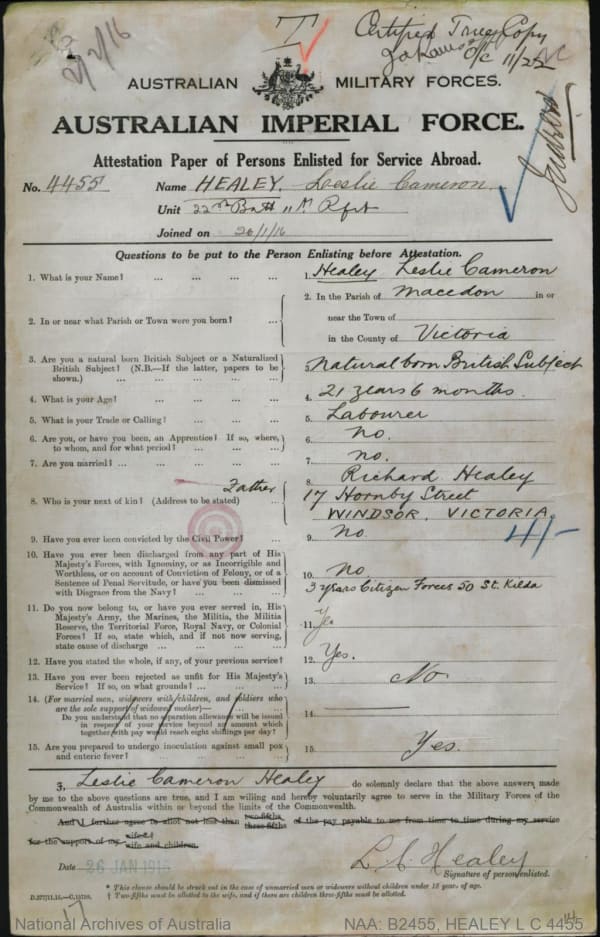 2/2/16
T
Certified True Copy
O/C 11/22
AUSTRALIAN MILITARY FORCES.
AUSTRALIAN IMPERIAL FORCE.
Attestation Paper of Persons Enlisted for Service Abroad.
No. 4455 Name HEALEY, Leslie Cameron
Unit 22nd Batt 11th Rft
Joined on 26/1/16
Questions to be put to the Person Enlisting before Attestation.
1. What is your Name? ... ... ... ... 1. Healey Leslie Cameron
2. In or near what Parish or Town were you born? ... 2. In the Parish of Macedon in or
near the Town of
in the County of Victoria
3. Are you a natural born British Subject or a Naturalized
British Subject? (N.B.—If the latter, papers to be
shown.) ... ... ... ... 3. Natural born British Subject
4. What is your Age? ... ... ... ... 4. 21 years 6 months.
5. What is your Trade or Calling? ... ... ... 5. Labourer
6. Are you, or have you been, an Apprentice? If so, where,
to whom, and for what period? ... ... ... 6. No.
7. Are you married? ... ... ... ... 7. No.
8. Who is your next of kin? (Address to be stated) ... Father 8. Richard Healey
17 Hornby Street
WINDSOR, VICTORIA.
9. Have you ever been convicted by the Civil Power? ... 9. No. 4/-
10. Have you ever been discharged from any part of His
Majesty's Forces, with Ignominy, or as Incorrigible and
Worthless, or on account of Conviction of Felony, or of a
Sentence of Penal Servitude, or have you been dismissed
with Disgrace from the Navy? ... ... ... 10. No
3 years Citizen Forces 50 St. Kilda
11. Do you now belong to, or have you ever served in, His
Majesty's Army, the Marines, the Militia, the Militia
Reserve, the Territorial Force, Royal Navy, or Colonial
Forces? If so, state which, and if not now serving,
state cause of discharge ... ... ... 11. Yes
12. Have you stated the whole, if any, of your previous service? 12. Yes.
13. Have you ever been rejected as unfit for His Majesty's
Service? If so, on what grounds? ... ... ... 13. No
14. (For married men, widowers with children, and soldiers who
are the sole support of widowed mother)—
Do you understand that no separation allowance will be issued
in respect of your service beyond an amount which
together with pay would reach eight shillings per day? 14.
15. Are you prepared to undergo inoculation against small pox
and enteric fever? ... ... ... ... 15. Yes.
I, Leslie Cameron Healey do solemnly declare that the above answers made
by me to the above questions are true, and I am willing and hereby voluntarily agree to serve in the Military Forces of the
Commonwealth of Australia within or beyond the limits of the Commonwealth.
And I further agree to allot not less than two-fifths three-fifths of the pay payable to me from time to time during my service
for the support of my wife.† wife and children.
Date 26 JAN 1916 L. C. Healey
Signature of person enlisted.
* This clause should be struck out in the case of unmarried men or widowers without children under 18 years of age.
† Two-fifths must be allotted to the wife, and if there are children three-fifths must be allotted.
17
National Archives of Australia NAA: B2455, HEALEY L C 4455